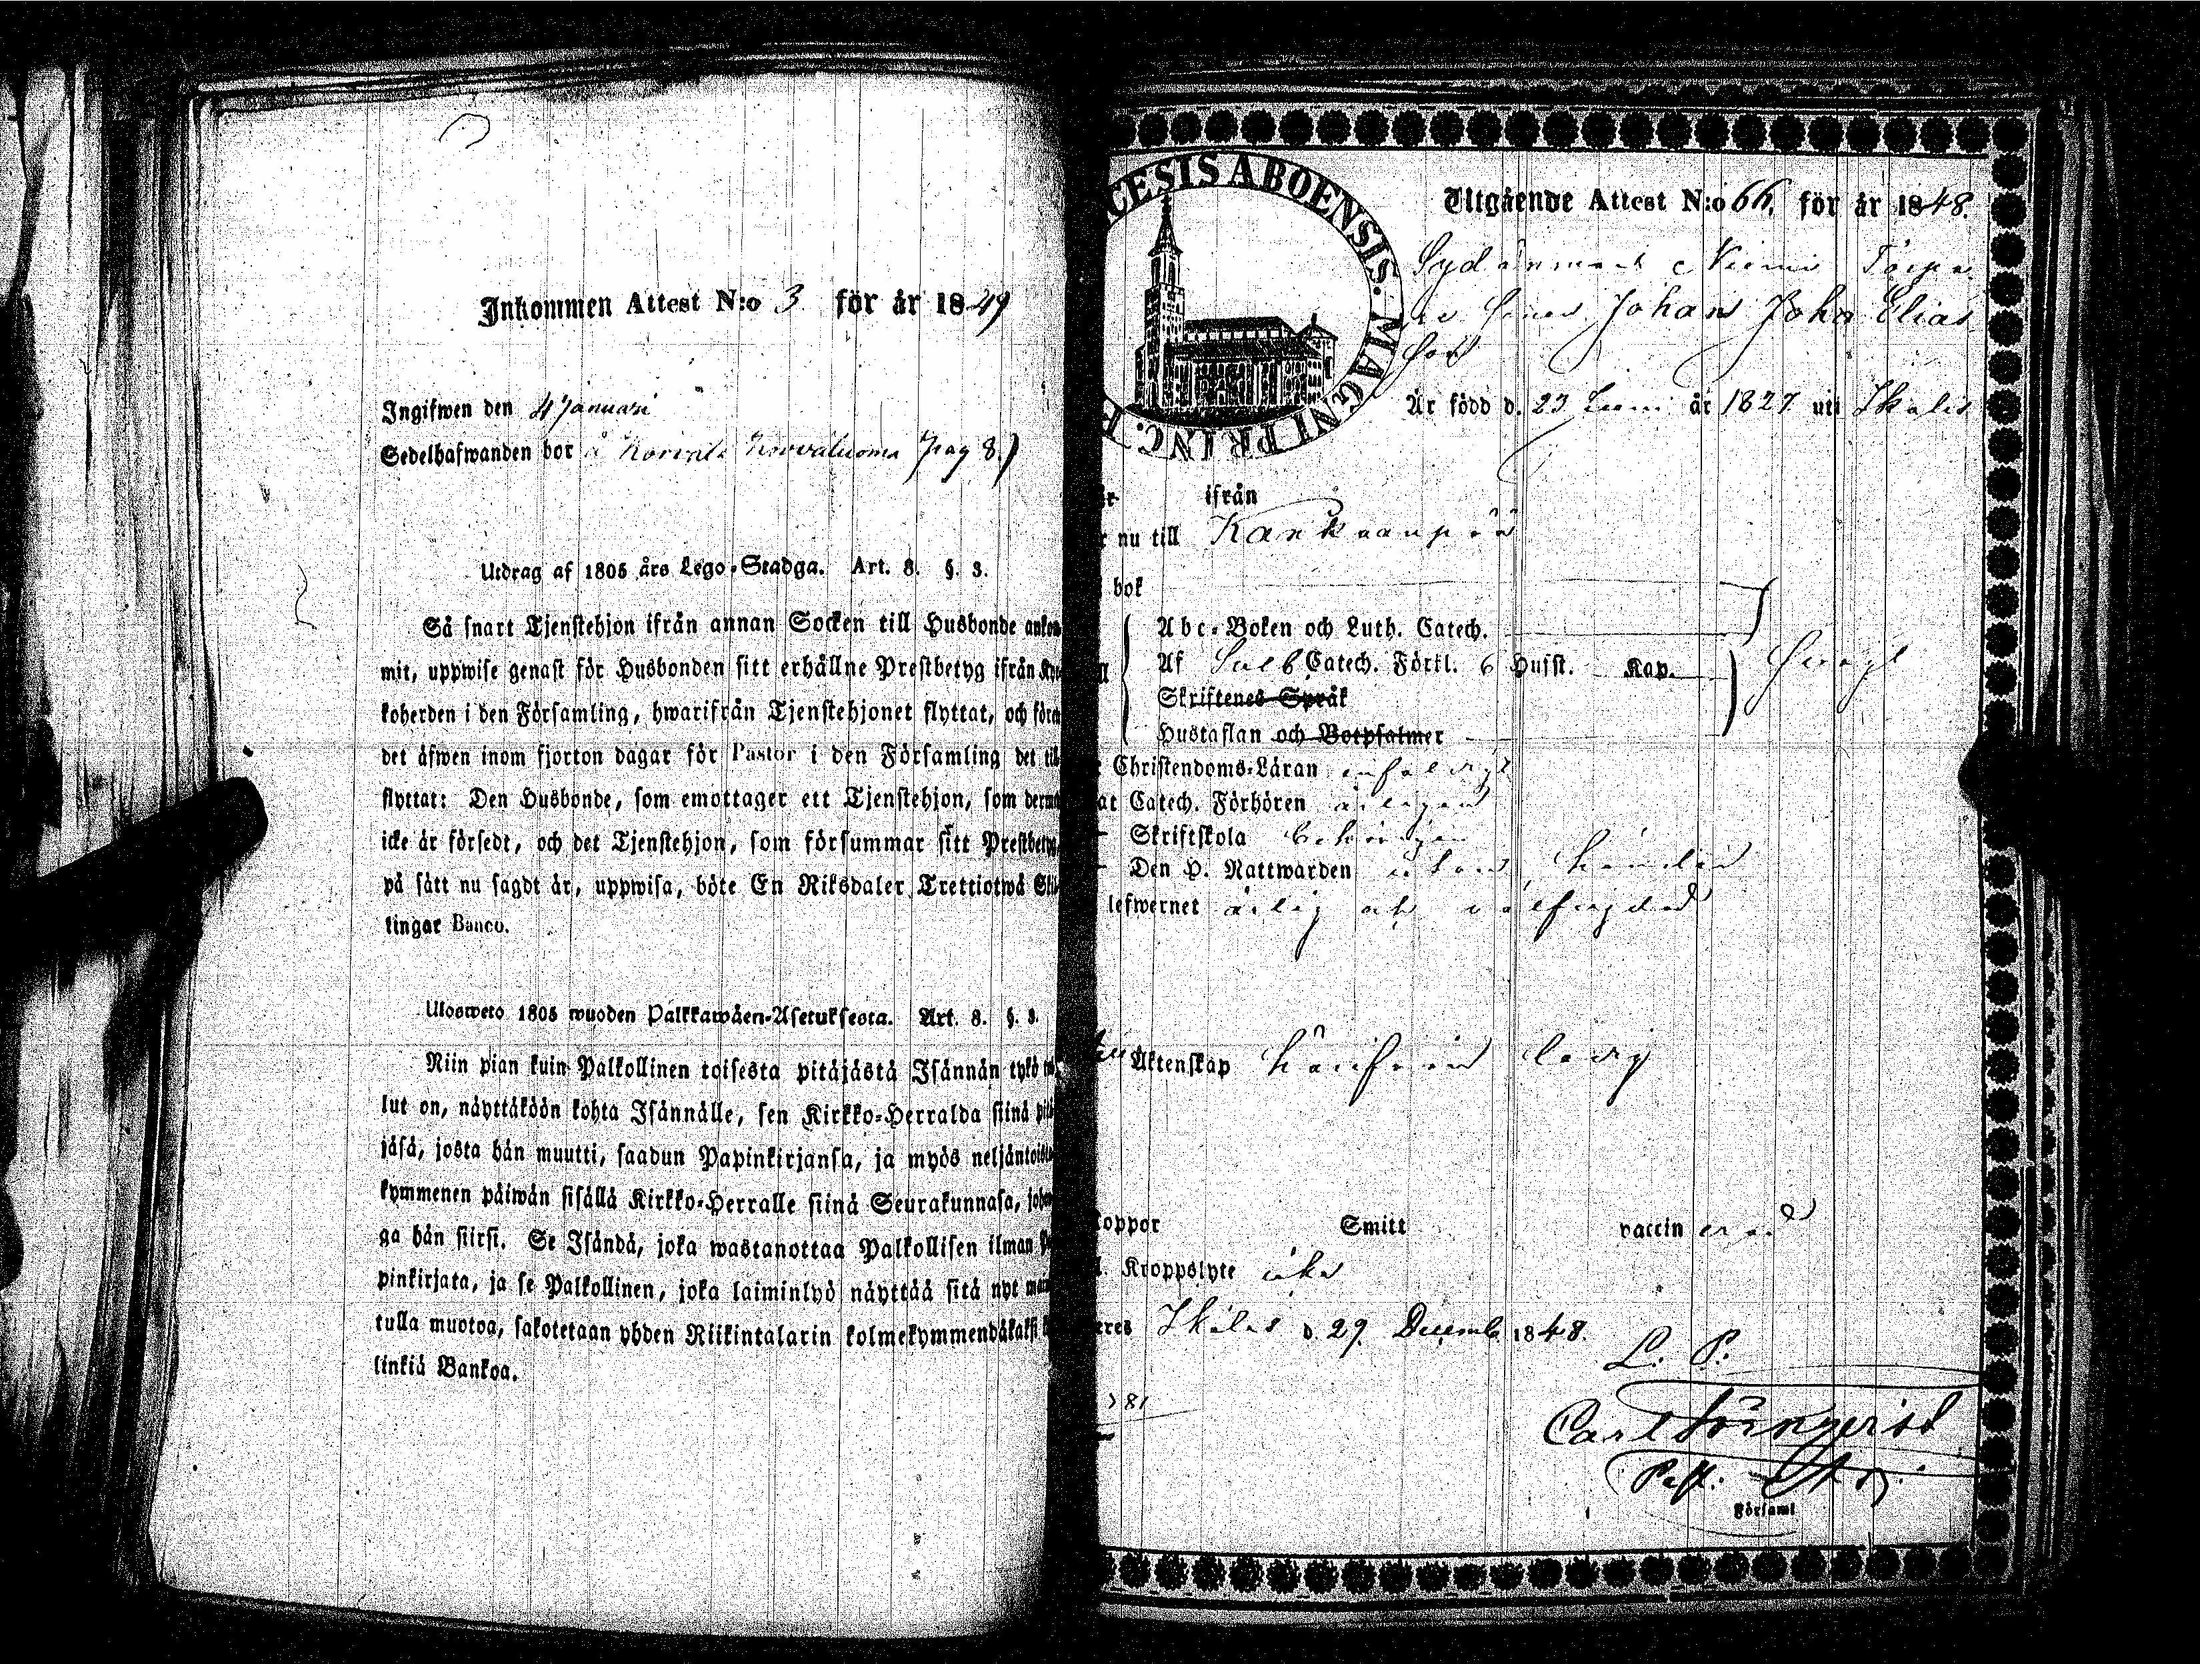 Inkommen Attest N:o 3 för år 1849
Ingifwen den 4 Januari
Sedelhafwanden bor å Korvala Korvaluoma pag 8.)
Utdrag af 1805 års Lego-Stadga. Art. 8. §. 3.
Så snart Tjenstehjon ifrån annan Socken till Husbonde ankom
mit, uppwise genast för Husbonden sitt erhållne Prestbetyg ifrån Kyr
koherden i den Församling, hwarifrån Tjenstehjonet flyttat, och före
det äfwen inom fjorton dagar för Pastor i den Församling det till
flyttat: Den Husbonde, som emottager ett Tjenstehjon, som dermed
icke är försedt, och det Tjenstehjon, som försummar sitt Prestbetyg,
på sätt nu sagdt är, uppwisa, böte En Riksdaler Trettiotwå Skil
lingar Banco.
Ulosweto 1805 wuoden Palkkawäen-Asetuksesta. Art. 8. §. 3.
Niin pian kuin Palkollinen toisesta pitäjästä Isännän tykö tul
lut on, näyttäköön kohta Isännälle, sen Kirkko-Herralda siinä pitä
jäsä, josta hän muutti, saadun Papinkirjansa, ja myös neljäntoista
kymmenen päiwän sisällä Kirkko-Herralle siinä Seurakunnasa, johon
ga hän siirsi. Se Isändä, joka wastanottaa Palkollisen ilman Pa
pinkirjata, ja se Palkollinen, joka laiminlyö näyttää sitä nyt mai
tulla muotoa, sakotetaan yhden Riikintalarin kolmekymmendäkaksi
linkiä Bankoa.
CESIS ABOENSIS. MAGNI PRINC. F
Utgående Attest N:o 66. för år 1848.
Johan Joha Elias
son
Är född d. 23 Juni år 1827 uti Ikalis
ifrån
r nu till Kankaanpää
bok
Abc-Boken och Luth. Catech.
Af Catech. Förkl. 6 Hufst. Kap.
Skriftenes Språk
Hustaflan och Botpsalmer
Christendoms-Läran enfaldigt
at Catech. Förhören årligen
Skriftskola behörigen
Den H. Nattwarden utan hinder
lefwernet ärlig och wälfrejdad
Äktenskap hinderslös ledig
oppor Smitt vaccin erad
l. Kroppslyte utan
eres Ikalis d. 29 Decemb 1848.
L. P.
81
Carl
Församl